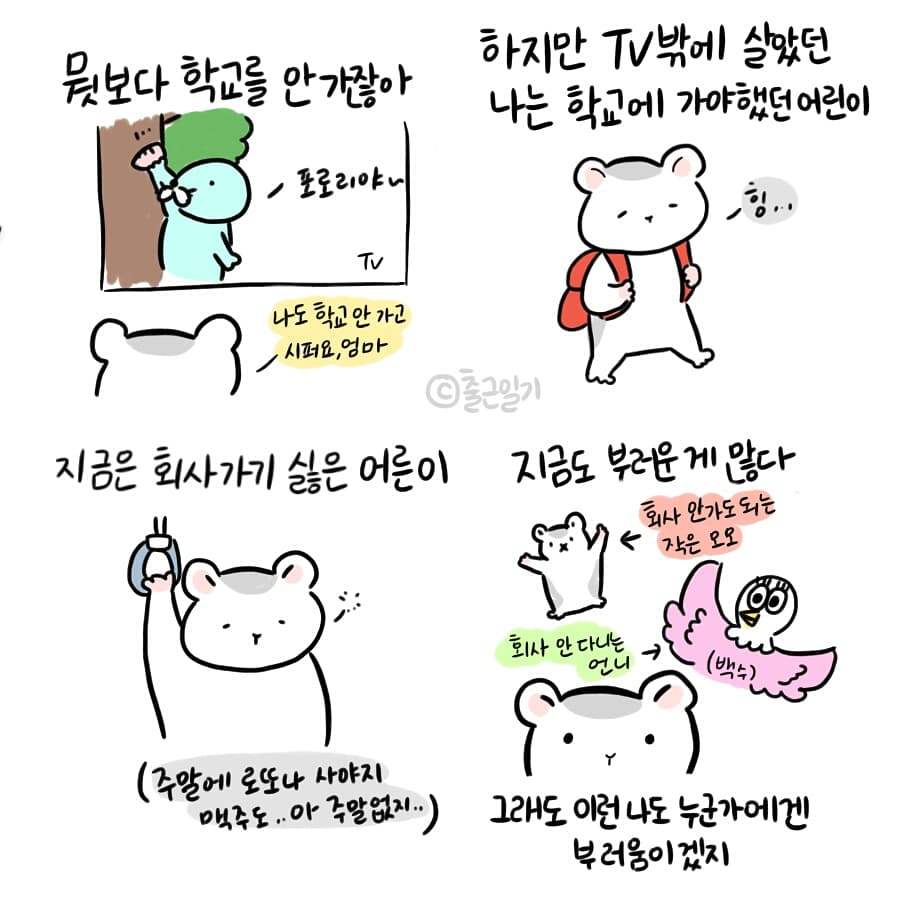 뭣보다 학교를 안 가잖아
...
포로리야~
TV
나도 학교 안 가고
시퍼요, 엄마
하지만 TV밖에 살았던
나는 학교에 가야했던 어린이
힝...
©출근일기
지금은 회사 가기 싫은 어른이
(주말에 로또나 사야지
맥주도..아 주말없지..)
지금도 부러운 게 많다
회사 안가도 되는
작은 오오
회사 안 다니는
언니
(백수)
그래도 이런 나도 누군가에겐
부러움이겠지